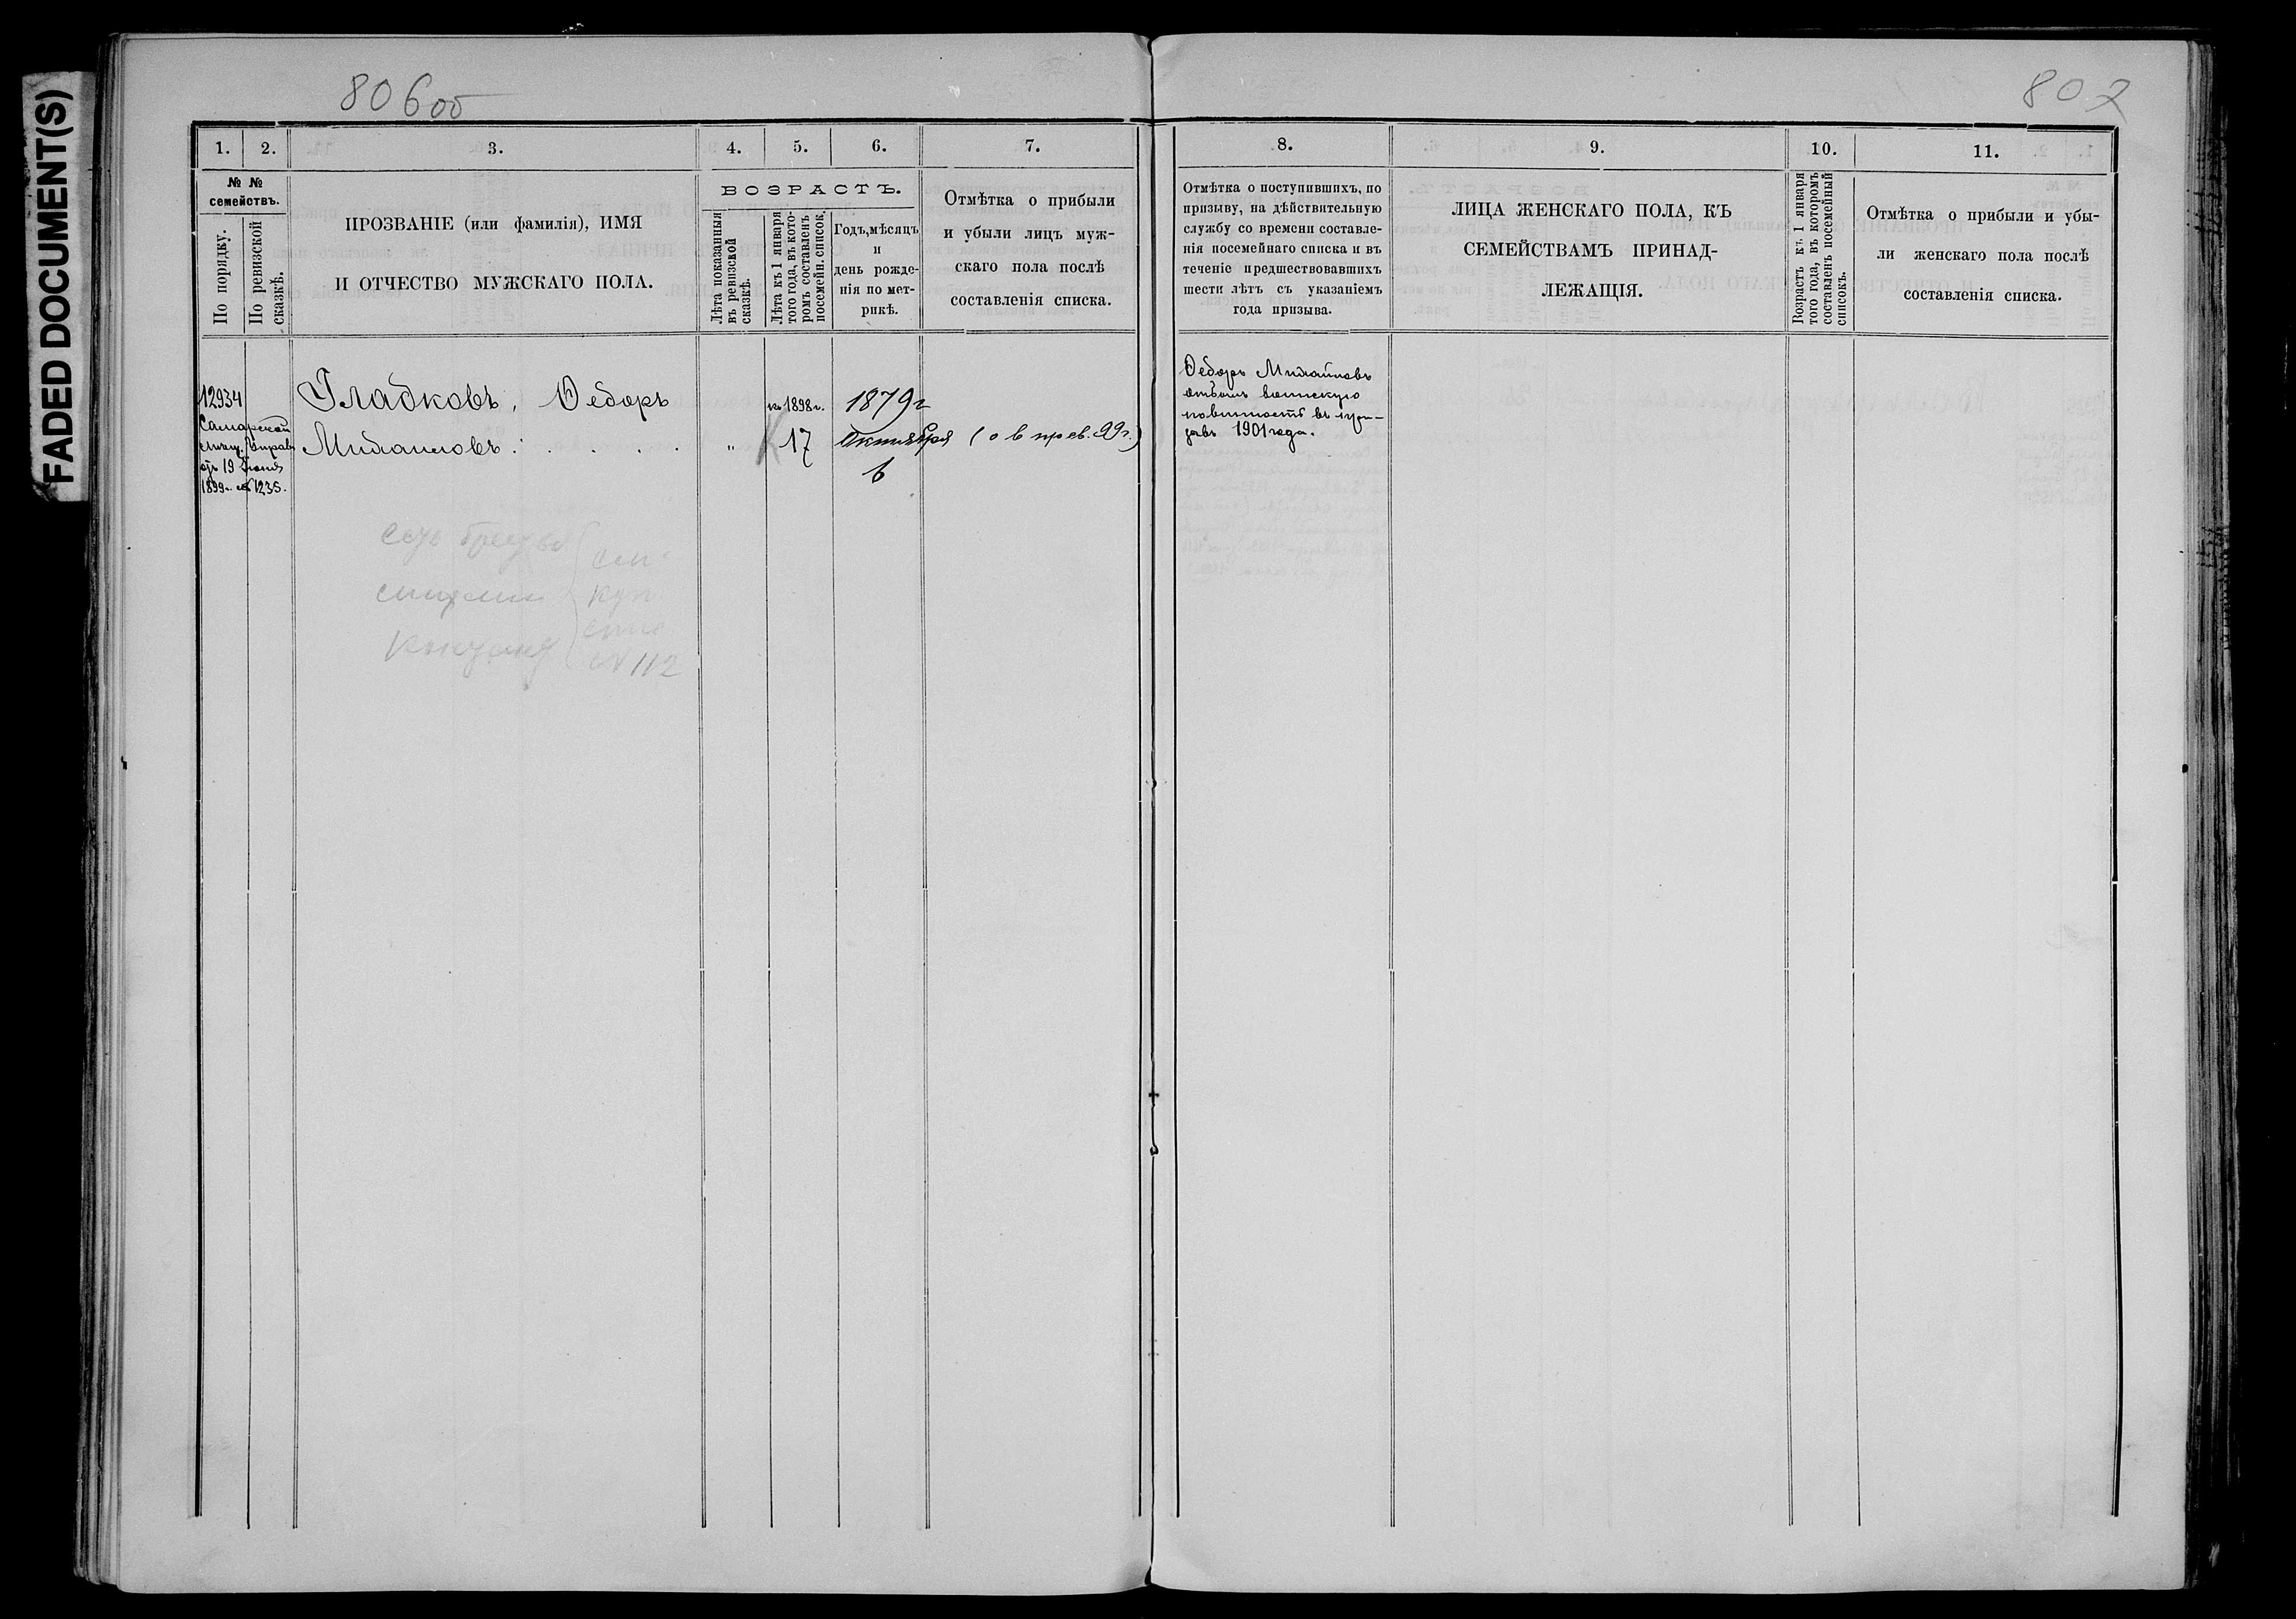 FADED DOCUMENT(S)
806 об
802
1. 2. 3. 4. 5. 6. 7.
№ № семействъ.
По порядку.
По ревизской сказкѣ.
ПРОЗВАНІЕ (или фамилія), ИМЯ
И ОТЧЕСТВО МУЖСКАГО ПОЛА.
ВОЗРАСТЪ.
Лѣта показанныя въ ревизской сказкѣ.
Лѣта къ 1 января того года, въ которомъ составленъ посемейн. список.
Годъ, мѣсяцъ
и
день рожде-
нія по мет-
рикѣ.
Отмѣтка о прибыли
и убыли лицъ муж-
скаго пола послѣ
составленія списка.
12934
Самарской
от 19 Июня
1899 г. № 1235.
Гладковъ, Ѳедоръ
Михайловъ.
"
къ 1898 г.
17
1879 г
Октября
6
№ 112
8. 9. 10. 11.
Отмѣтка о поступившихъ, по
призыву, на дѣйствительную
службу со времени составле-
нія посемейнаго списка и въ
теченіе предшествовавшихъ
шести лѣтъ съ указаніемъ
года призыва.
ЛИЦА ЖЕНСКАГО ПОЛА, КЪ
СЕМЕЙСТВАМЪ ПРИНАД-
ЛЕЖАЩІЯ.
Возрастъ къ 1 января того года, въ которомъ составленъ посемейный списокъ.
Отмѣтка о прибыли и убы-
ли женскаго пола послѣ
составленія списка.
Ѳедоръ Михайловъ
отбылъ воинскую
повинность въ при-
зывъ 1901 года.